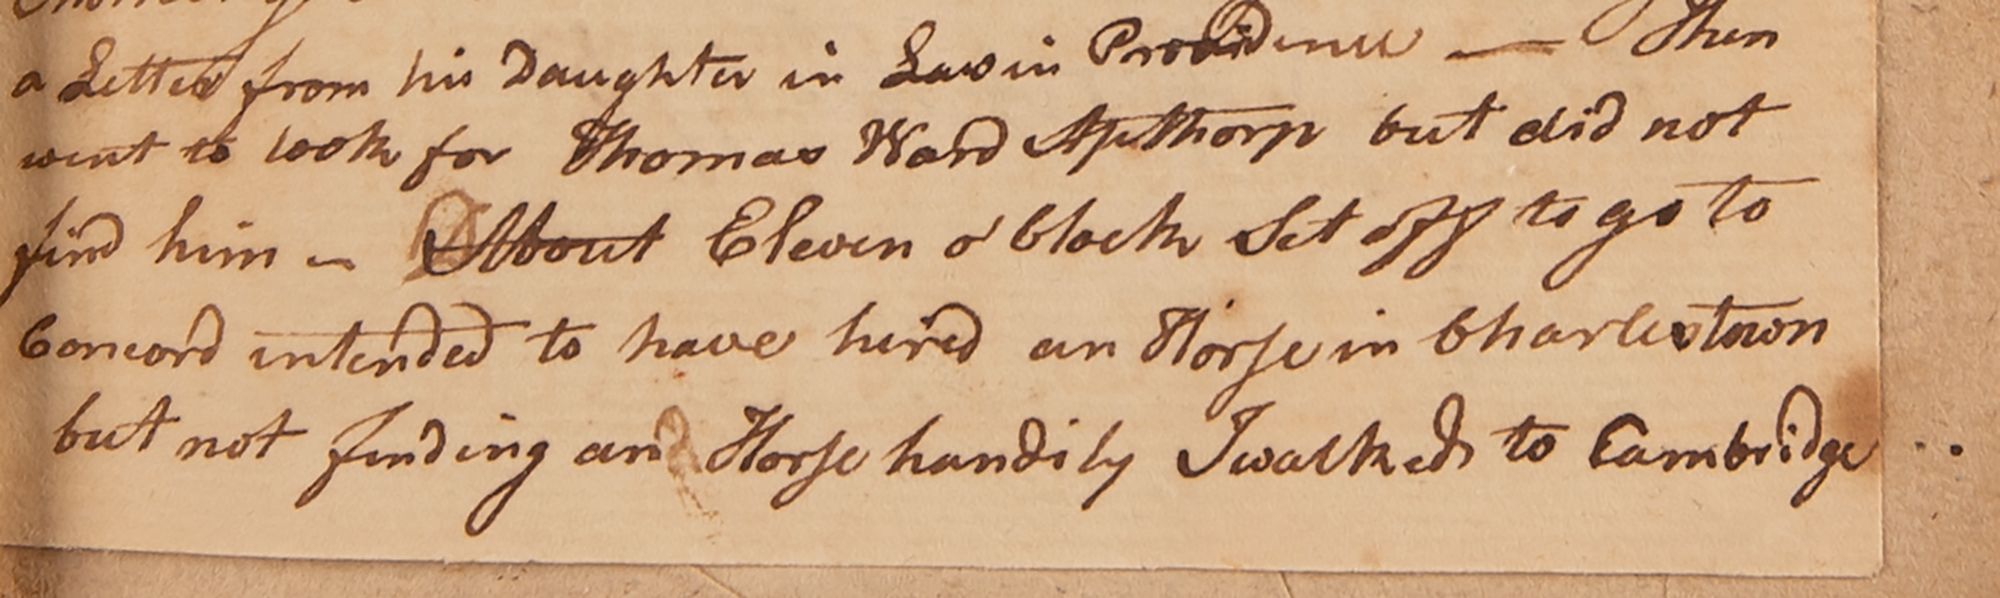 a Letter from his Daughter in Law in Providence — Then
went to look for Thomas Ward Apthorp but did not
find him – About Eleven o'Clock Set off to go to
Concord intended to have hired an Horse in Charlestown
but not finding an Horse handily I walked to Cambridge